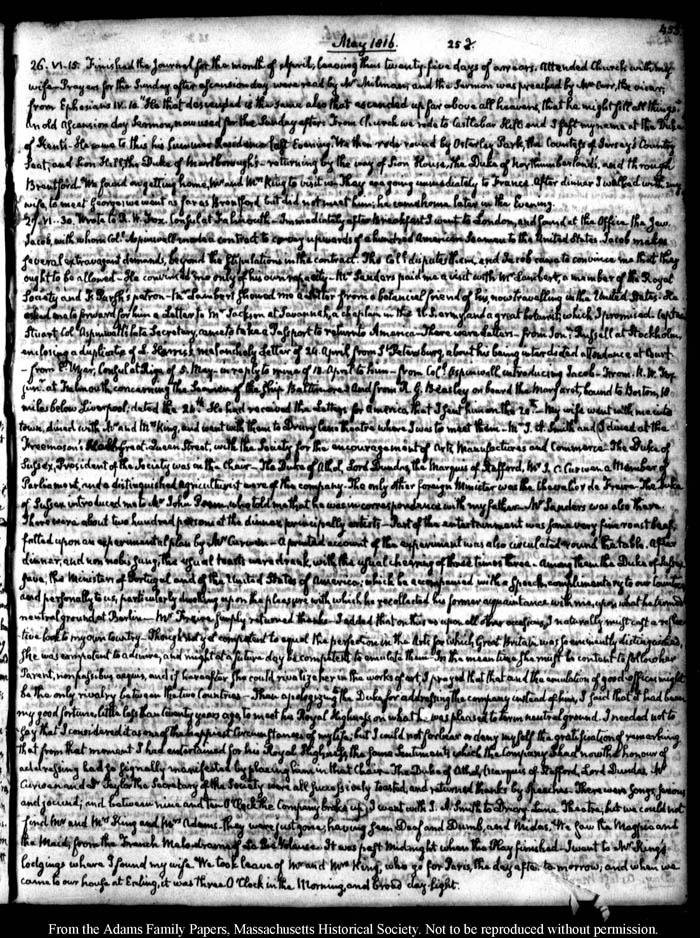 455
May 1816. 252.
26. VI.15. Finished the Journal for the month of April, leaving thus twenty-five days of arrears. Attended Church with my
wife. Prayers for the Sunday after Ascension day were read by Mr Milman, and the Sermon was preached by Mr Carr, the vicar;
from Ephesians IV. 10. "He that descended is the same also that ascended up far above all heavens, that he might fill all things."
An old Ascension day Sermon, now used for the Sunday after. From Church we rode to Castlebar Hill and I left my name at the Duke
of Kent's. He came to this his Summer Residence last Evening. We then rode round by Osterley Park, the Countess of Jersey's Country
Seat, and Sion Hill, the Duke of Marlborough's—returning by the way of Sion House, the Duke of Northumberland's, and through
Brentford. We found on getting home, Mr and Mrs King to visit us. They are going immediately to France. After dinner I walked with my
wife to meet George; we went as far as Brentford but did not meet him; he came home later in the Evening.
27. VI.30. Wrote to R. W. Fox. Consul at Falmouth—Immediately after breakfast I went to London, and found at the Office the Jew
Jacob, with whom Coll. Aspinwall made a contract to convey upwards of a hundred American Seamen to the United States. Jacob makes
several extravagant demands, beyond the stipulations in the contract. The Coll. disputes them, and Jacob came to convince me that they
ought to be allowed—He convinced me only of his own rapacity—Mr Sanders paid me a visit with Mr Lambert, a member of the Royal
Society and patron—Mr Lambert showed me a letter from a botanical friend of his, now travelling in the United States. He
asked me to forward for him a Letter to Mr Jackson at Savannah, a chaplain in the U.S. army, and a great botanist; which I promised. Captain
Stuart, Coll. Aspinwall's late Secretary, came to take a Passport to return to America. There were letters—from Jon. Russell at Stockholm,
enclosing a duplicate of L. Harris's melancholy Letter of 24. April, from St Petersburg, about his being interdicted attendance at Court
—from Consul at Riga of 5. May—in reply to mine of 13. April to him—from Coll. Aspinwall introducing Jacob—From R. W. Fox
junr. at Falmouth concerning the Seamen of the Ship Baltimore—And from R. G. Beasley on board the Margaret, bound to Boston, 10
miles below Liverpool; dated the 24th. He had received the Letters for America that I sent him on the 20th—My wife went with me into
town, dined with Mr and Mrs King, and went with them to Drury Lane theatre where I was to meet them—Mr J. A. Smith and I dined at the
Freemason's Hall, Great-Queen Street, with the Society for the encouragement of Arts, Manufactures and Commerce—The Duke of
Sussex, President of the Society was in the Chair—The Duke of Athol, Lord Dundas, the Marquis of Stafford, Mr J. C. Curwen a Member of
Parliament, and a distinguished Agriculturist were of the company. The only other foreign Minister was the Chevalier de Freire—The Duke
of Sussex introduced me to Mr John Penn, who told me that he was in correspondence with my father—Mr Sanders was also there.
There were about two hundred persons at the dinner; principally artists—Part of the entertainment was some very fine roast beef,
fatted upon an experimental plan by Mr Curwen—A printed account of the experiment was also circulated round the table. After
dinner, and non nobis sung, the usual toasts were drank, with the usual cheering of three times three—Among them the Duke of Sussex
gave, the Minister of Portugal and of the United States of America; which he accompanied with a Speech, complimentary to our Countries
and personally to us, particularly dwelling upon the pleasure with which he recollected his former acquaintance with me, upon what he termed
neutral ground at Berlin—Mr Freire simply returned thanks—I added that on this as upon all other occasions, I naturally must cast a reflec-
tive look to my own Country—Though not yet competent to equal the perfection in the Arts for which Great Britain was so eminently distinguished,
she was competent to admire, and might at a future day be competent to emulate them—In the mean time she must be content to follow her
Parent, non passibus aequis, and if hereafter she could rivalize her in the works of art I prayed that that and the emulation of good offices might
be the only rivalry between the two Countries—Then apologizing to the Duke for addressing the company instead of him, I said that it had been
my good fortune, little less than twenty years ago to meet his Royal Highness on what he was pleased to term neutral ground. I needed not to
say that I considered it as one of the happiest Circumstances of my life; but I could not forbear or deny myself the gratification of remarking
that from that moment I had entertained for his Royal Highness, the same Sentiments which the company I had now the honour of
addressing had so signally manifested by placing him in that Chair—The Duke of Athol, Marquis of Stafford, Lord Dundas, Mr
Curwen and Dr Taylor the Secretary of the Society were all successively toasted, and returned thanks by Speeches. There were Songs, serious
and jocund; and between nine and ten O'Clock the Company broke up. I went with J. A. Smith to Drury-Lane Theatre, but we could not
find Mr and Mrs King and Mrs Adams—they were just gone; having seen Deaf and Dumb, and Midas. We saw the Magpie and
the Maid; from the French Melodrama of La Pie Voleuse. It was past Midnight when the Play finished. I went to Mr King's
lodgings where I found my wife. We took leave of Mr and Mrs King, who go for Paris, the day after to morrow; and when we
came to our house at Ealing, it was three O'Clock in the Morning, and broad day light.
From the Adams Family Papers, Massachusetts Historical Society. Not to be reproduced without permission.